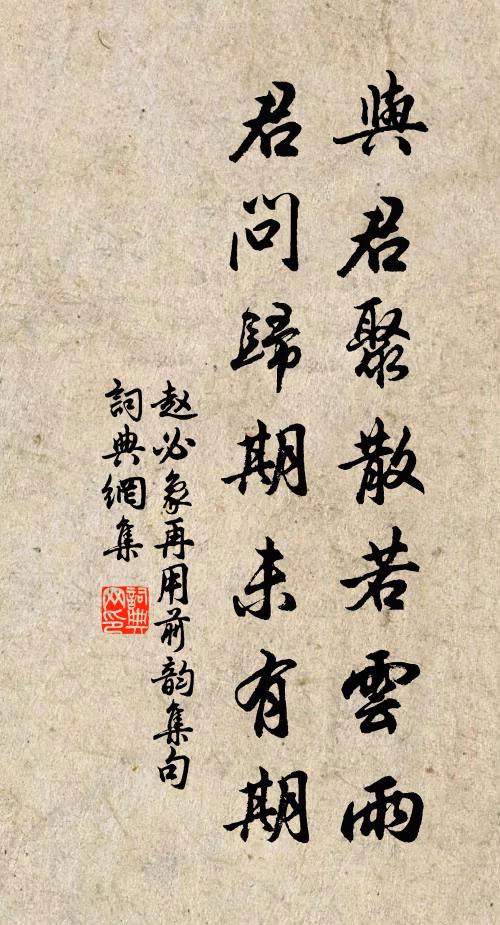 與君聚散若雲雨
君問歸期未有期
赵必象再用前韵集句
詞典網集
詞典网印